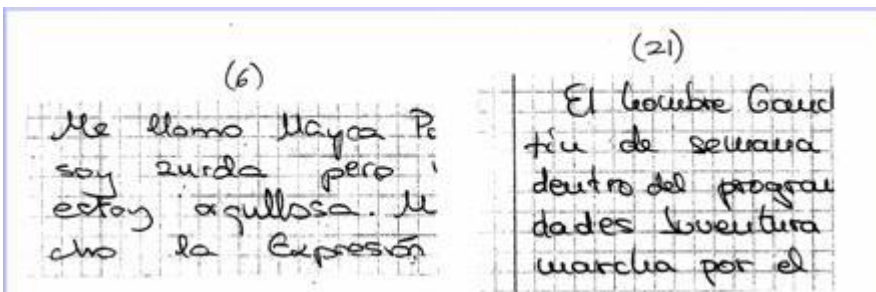 (6)
Me llamo Mayca Pe
soy zurda pero
estoy orgullosa. M
cho la Expresión
(21)
El hombre Gand
fin de semana
dentro del program
dades Juventura
marcha por el